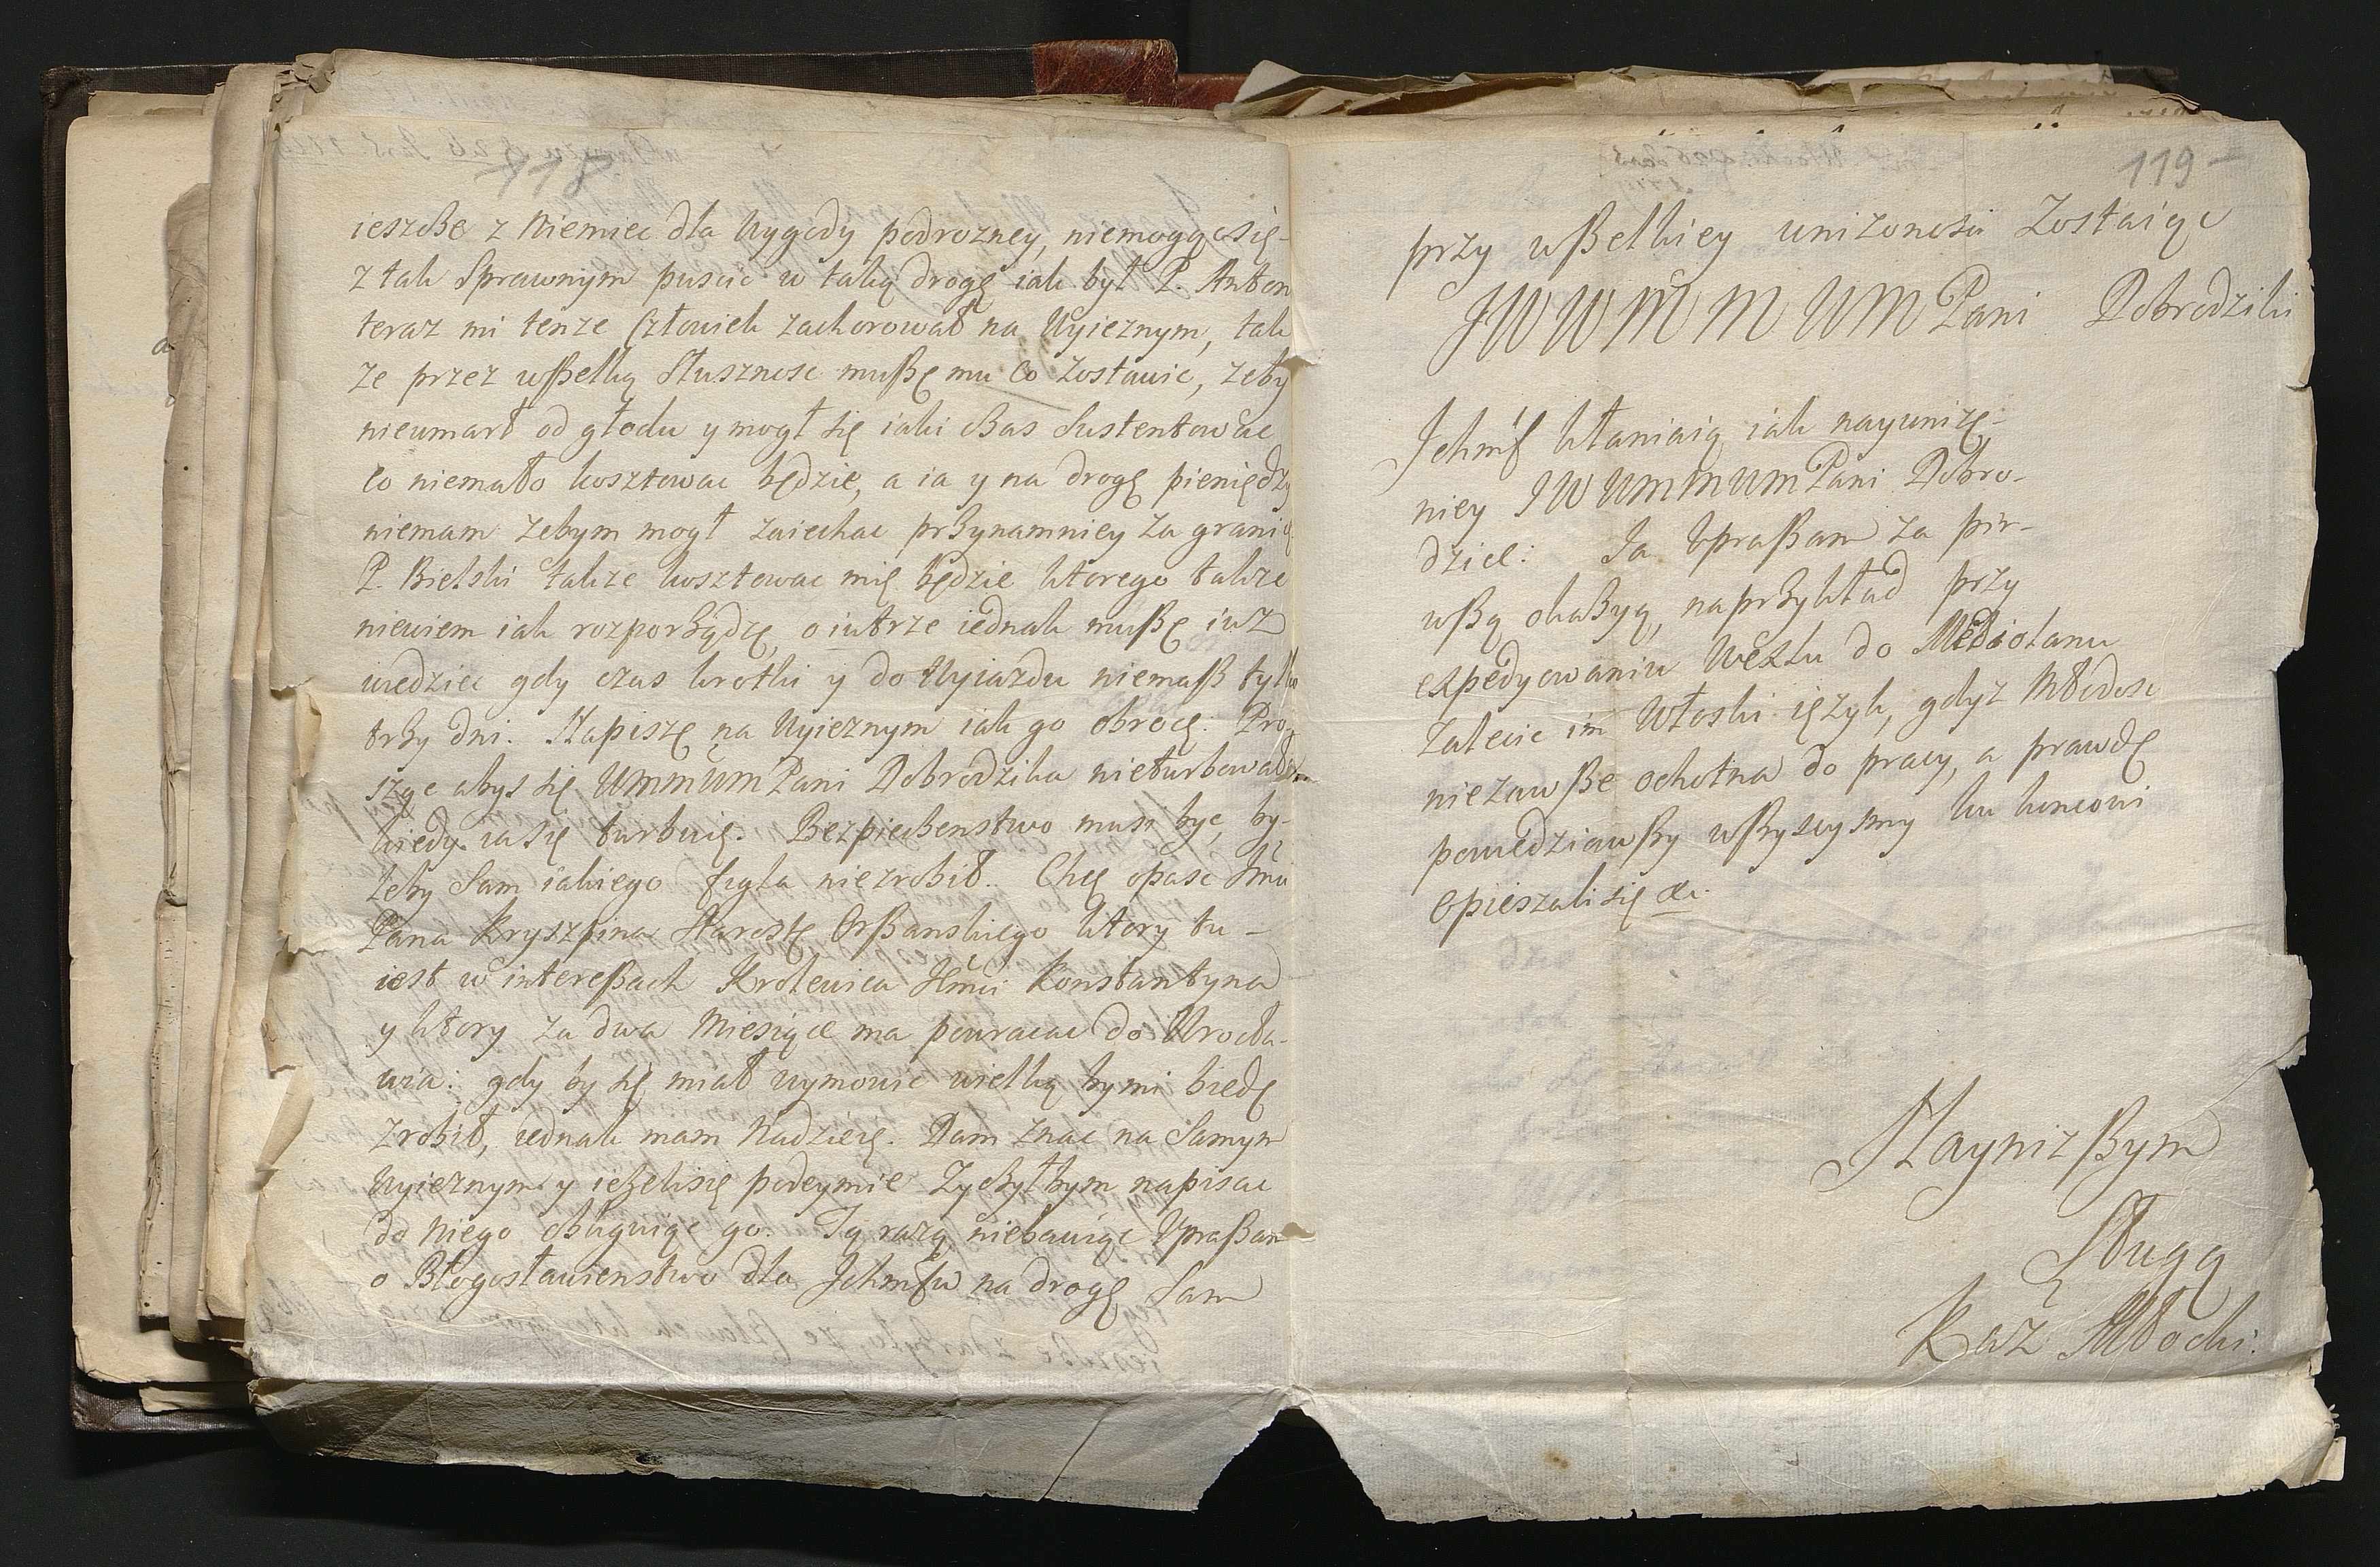 118
ieszcße z Niemiec dla Wygody podrozney, niemogąc się
z tak Sprawnym puscic w taką drogę iak był P. Anton
teraz mi tenze Człowiek zachorował na Wyieznym, tak
ze przez wßelką Słusznosc mußę mu co zostawic, zeby
nieumarł od głodu y mogł się iaki cßas Sustentowac
co niemało kosztowac będzie, a ia y na drogę pieniędzy
niemam zebym mogł zaiechac prßynamniey za granicę
P. Bielski takze kosztowac mię będzie ktorego takze
niewiem iak rozporßądzę, o iutrze iednak mußę iuz
wiedziec gdy czas krotki y do Wyiazdu niemaß tylko
trßy dni. Napiszę na Wyieznym iak go obrocę. Pro-
szę abys się WMMWM Pani Dobrodzika nieturbowała
kiedy ia się turbuię. Bezpiecßenstwo musi byc, by-
zeby Sam iakiego figla niezrobił. Chcę opasc Jmci
Pana Kryszpina Starostę Orßanskiego ktory tu
iest w intereßach Krolewica Jmci Konstantyna
y ktory za dwa Miesiące ma powracac do Wrocła-
wia: gdy by się miał wymowic wielką by mi biedę
zrobił, iednak mam Nadzieię. Dam znac na Samym
Wyieznym y ieżeli się podeymie Zycßył bym napisac
do Niego obliguiąc go. Tą razą niebawiąc Upraßam
o Błogosławienstwo dla Ichmsciw na drogę Sam
119
przy wßelkiey unizonosci Zostaiąc
JWWMMWM Pani Dobrodziki
Ichmść kłaniaią iak nayunizę-
niey JWWMMWM Pani Dobro-
dzice: Ja Upraßam za pir-
wßą okaßyą, naprßykład przy
expedyowaniu Wexlu do Mediolanu
zalecic im Włoski ięzyk, gdyz Młodosc
niezawße ochotna do pracy, a prawdę
powiedziawßy wßyscysmy ku koncowi
opieszali się &c.
Naynizßym
Sługą
Kaz Młocki.